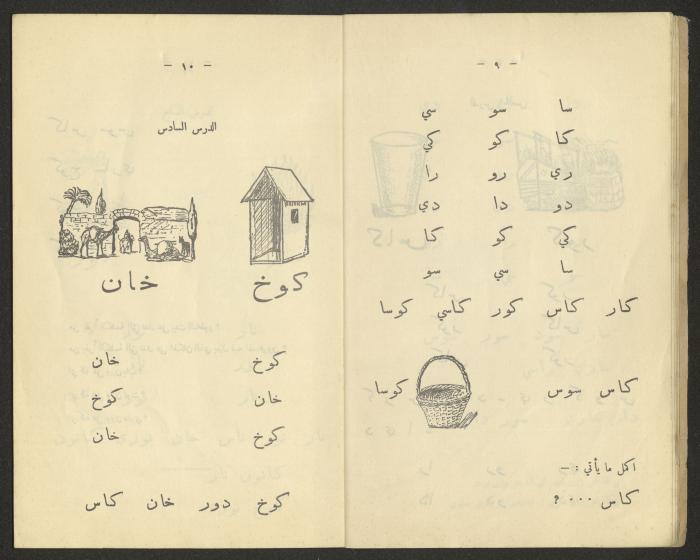 - ٩ -
سا سو سي
كا كو كي
ري رو را
دو دا دي
كي كو كا
سا سي سو
كار كاس كور كاسي كوسا
كاس سوس كوسا
اكمل ما يأتي : —
كاس ٠٠٠ ؟
- ١٠ -
الدرس السادس
كوخ خان
كوخ خان
خان كوخ
كوخ خان
كوخ دور خان كاس